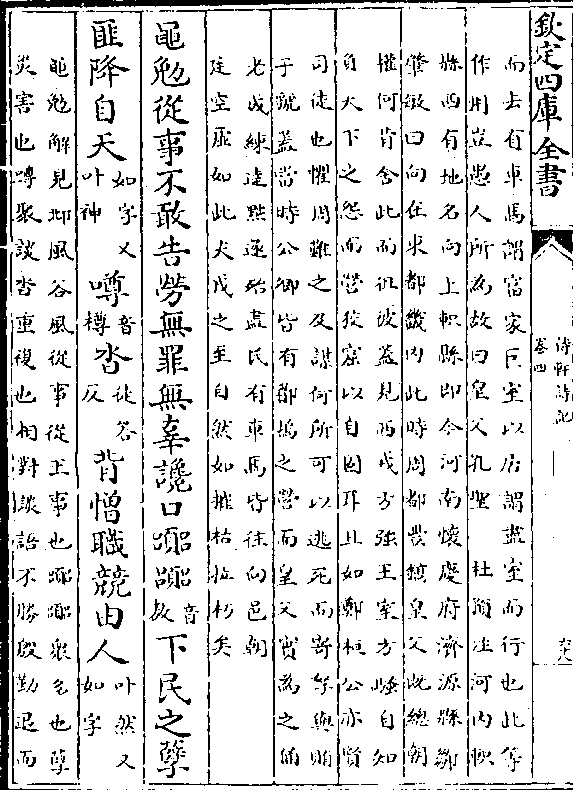 欽定四庫全書
待軒詩記
卷四
而去有車馬謂富家巨室以居謂盡室而行也此等
作用豈愚人所為故曰皇父孔聖 杜預注河内軹
縣西有地名向上軹縣即今河南懷慶府濟源縣鄒
肇敏曰向在東都畿内此時周都豐鎬皇父既總朝
權何肯舍此而徂彼蓋見西戎方強王室方騷自知
負天下之怨而營狡窟以自固耳且如鄭桓公亦賢
司徒也懼周難之及謀何所可以逃死而寄孥與賄
于虢蓋當時公卿皆有郿塢之營而皇父實為之俑
老成練達黜逐殆盡民有車馬皆徃向邑朝
廷空虚如此犬戎之至自然如摧枯拉朽矣
黽勉從事不敢告勞無罪無辜讒口嚻嚻音敖下民之孽
匪降自天如字又叶神噂音樽沓徒荅反背憎職競由人叶然又如字
黽勉解見邶風谷風從事從王事也嚻嚻衆多也孽
災害也噂聚談沓重複也相對談語不勝殷勤退而